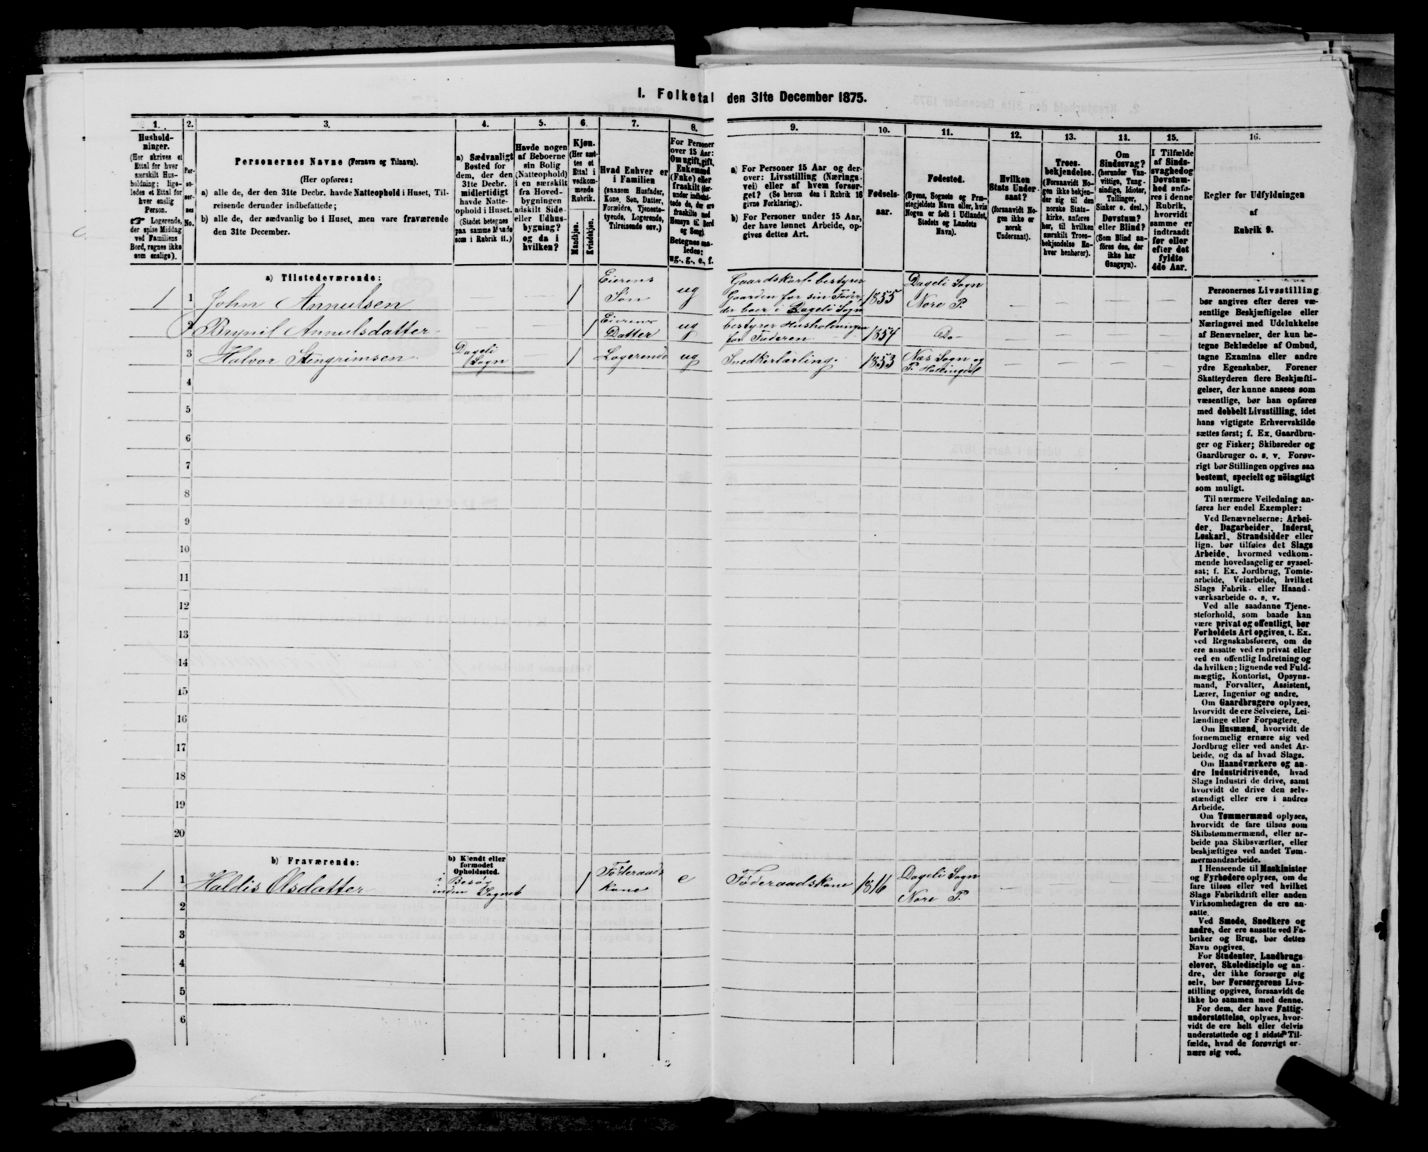 I. Folketal den 31te December 1875.
1. 2. 3. 4. 5. 6. 7. 8. 9. 10. 11. 12. 13. 14. 15. 16.
Hushold-
ninger.
(Her skrives et
Ettal for hver
særskilt Hus-
holdning; lige-
ledes et Ettal for
hver enslig
Person.
☞ Logerende,
der spise Middag
ved Familiens
Bord, regnes ikke
som enslige).
Per-
so-
ner-
nes
No.
Personernes Navne (Fornavn og Tilnavn).
(Her opføres:
a) alle de, der den 31te Decbr. havde Natteophold i Huset, Til-
reisende derunder indbefattede;
b) alle de, der sædvanlig bo i Huset, men vare fraværende
den 31te December.
a) Sædvanligt
Bosted for
dem, der den
31te Decbr.
midlertidigt
havde Natte-
ophold i Huset.
(Stedet betegnes
paa samme Maade
som i Rubrik 11.)
Havde nogen
af Beboerne
sin Bolig
(Natteophold)
i en særskilt
fra Hoved-
bygningen
adskilt Side-
eller Udhus-
bygning?
og da i
hvilken?
Kjøn.
(Her sæt-
tes et
Ettal i
vedkom-
mende
Rubrik.
Mandkjøn.
Kvindekjøn.
Hvad Enhver er
i Familien
(saasom Husfader,
Kone, Søn, Datter,
Forældre, Tjeneste-
tyende, Logerende,
Tilreisende osv.)
For Personer
over 15 Aar:
Om ugift, gift,
Enkemand
(Enke) eller
fraskilt
a) For Personer 15 Aar og der-
over: Livsstilling (Nærings-
vei) eller af hvem forsør-
get? (Se herom den i Rubrik 16
givne Forklaring).
b) For Personer under 15 Aar,
der have lønnet Arbeide, op-
gives dettes Art.
Fødsels-
aar.
Fødested.
(Byens, Sognets og Præ-
stegjeldets Navn eller, hvis
Nogen er født i Udlandet,
Stedets og Landets
Navn).
Hvilken
Stats Under-
saat?
(forsaavidt No-
gen ikke er
norsk
Undersaat).
Troes-
bekjendelse.
(Forsaavidt No-
gen ikke bekjen-
der sig til den
norske Stats-
kirke, anføres
her, til hvilken
særskilt Troes-
bekjendelse En-
hver henhører).
Om
Sindssvag?
(herunder Van-
vittige, Tung-
sindige, Idioter,
Tullinger,
Sinker o. desl.)
Døvstum?
eller Blind?
(Som Blind an-
føres den, der
ikke har
Gangsyn).
I Tilfælde
af Sinds-
svaghed og
Døvstum-
hed anfø-
res i denne
Rubrik,
hvorvidt
samme er
indtraadt
før eller
efter det
fyldte
4de Aar.
Regler for Udfyldningen
af
Rubrik 9.
a) Tilstedeværende:
1 1 John Annulsen — — 1 Eierens Søn ug Gaardskarl bestyrer Gaarden for sin Fader der boer i Dageli Sogn 1855 Dageli Sogn Nore P. — — — —
2 Brynil Annulsdatter — — 1 Eierens Datter ug bestyrer Husholdningen for Faderen 1857 Do — — — —
3 Halvor Stengrimsen Dageli Sogn — 1 Logerende ug Snedkerlærling 1853 Næs Sogn og P. Hallingdal — — — —
4
5
6
7
8
9
10
11
12
13
14
15
16
17
18
19
20
b) Fraværende:
b) Kjendt eller
formodet
Opholdssted.
1 1 Haldis Olsdatter i Besøg inden Sognet 1 Føderaads kone e Føderaadskone 1816 Dageli Sogn Nore P. — — — —
2
3
4
5
6
Personernes Livsstilling
bør angives efter deres væ-
sentlige Beskjæftigelse eller
Næringsvei med Udelukkelse
af Benævnelser, der kun be-
tegne Beklædelse af Ombud,
tagne Examina eller andre
ydre Egenskaber. Forener
Skatteyderen flere Beskjæfti-
gelser, der kunne ansees som
væsentlige, bør han opføres
med dobbelt Livsstilling, idet
hans vigtigste Erhvervskilde
sættes først; f. Ex. Gaardbru-
ger og Fisker; Skibsreder og
Gaardbruger o. s. v. Forøv-
rigt bør Stillingen opgives saa
bestemt, specielt og nöiagtigt
som muligt.
Til nærmere Veiledning an-
føres her endel Exempler:
Ved Benævnelserne: Arbei-
der, Dagarbeider, Inderst,
Løskarl, Strandsidder eller
lign. bør tilføies det Slags
Arbeide, hvormed vedkom-
mende hovedsagelig er syssel-
sat; f. Ex. Jordbrug, Tomte-
arbeide, Veiarbeide, hvilket
Slags Fabrik- eller Haand-
værksarbeide o. s. v.
Ved alle saadanne Tjene-
steforhold, som baade kan
være privat og offentligt, bør
Forholdets Art opgives, t. Ex.
ved Regnskabsførere, om de
ere ansatte ved en privat eller
ved en offentlig Indretning og
da hvilken; lignende ved Fuld-
mægtig, Kontorist, Opsyns-
mand, Forvalter, Assistent,
Lærer, Ingeniør og andre.
Om Gaardbrugere oplyses,
hvorvidt de ere Selveiere, Lei-
lændinge eller Forpagtere.
Om Husmænd, hvorvidt de
fornemmelig ernære sig ved
Jordbrug eller ved andet Ar-
beide, og da af hvad Slags.
Om Haandværkere og an-
dre Industridrivende, hvad
Slags Industri de drive, samt
hvorvidt de drive den selv-
stændigt eller ere i andres
Arbeide.
Om Tømmermænd oplyses,
hvorvidt de fare tilsøs som
Skibstømmermænd, eller ar-
beide paa Skibsværfter, eller
beskjæftiges ved andet Tøm-
mermandsarbeide.
I Henseende til Maskinister
og Fyrbødere oplyses, om de
fare tilsøs eller ved hvilket
Slags Fabrikdrift eller anden
Virksomhedsgren de ere an-
satte.
Ved Smede, Snedkere og
andre, der ere ansatte ved Fa-
briker og Brug, bør dettes
Navn opgives.
For Studenter, Landbrugs-
elever, Skoledisciple og an-
dre, der ikke forsørge sig
selv, bør Forsørgerens Livs-
stilling opgives, forsaavidt de
ikke bo sammen med denne.
For dem, der have Fattig-
understøttelse, oplyses, hvor-
vidt de ere helt eller delvis
understøttede og i sidste Til-
fælde, hvad de forøvrigt er-
nære sig ved.